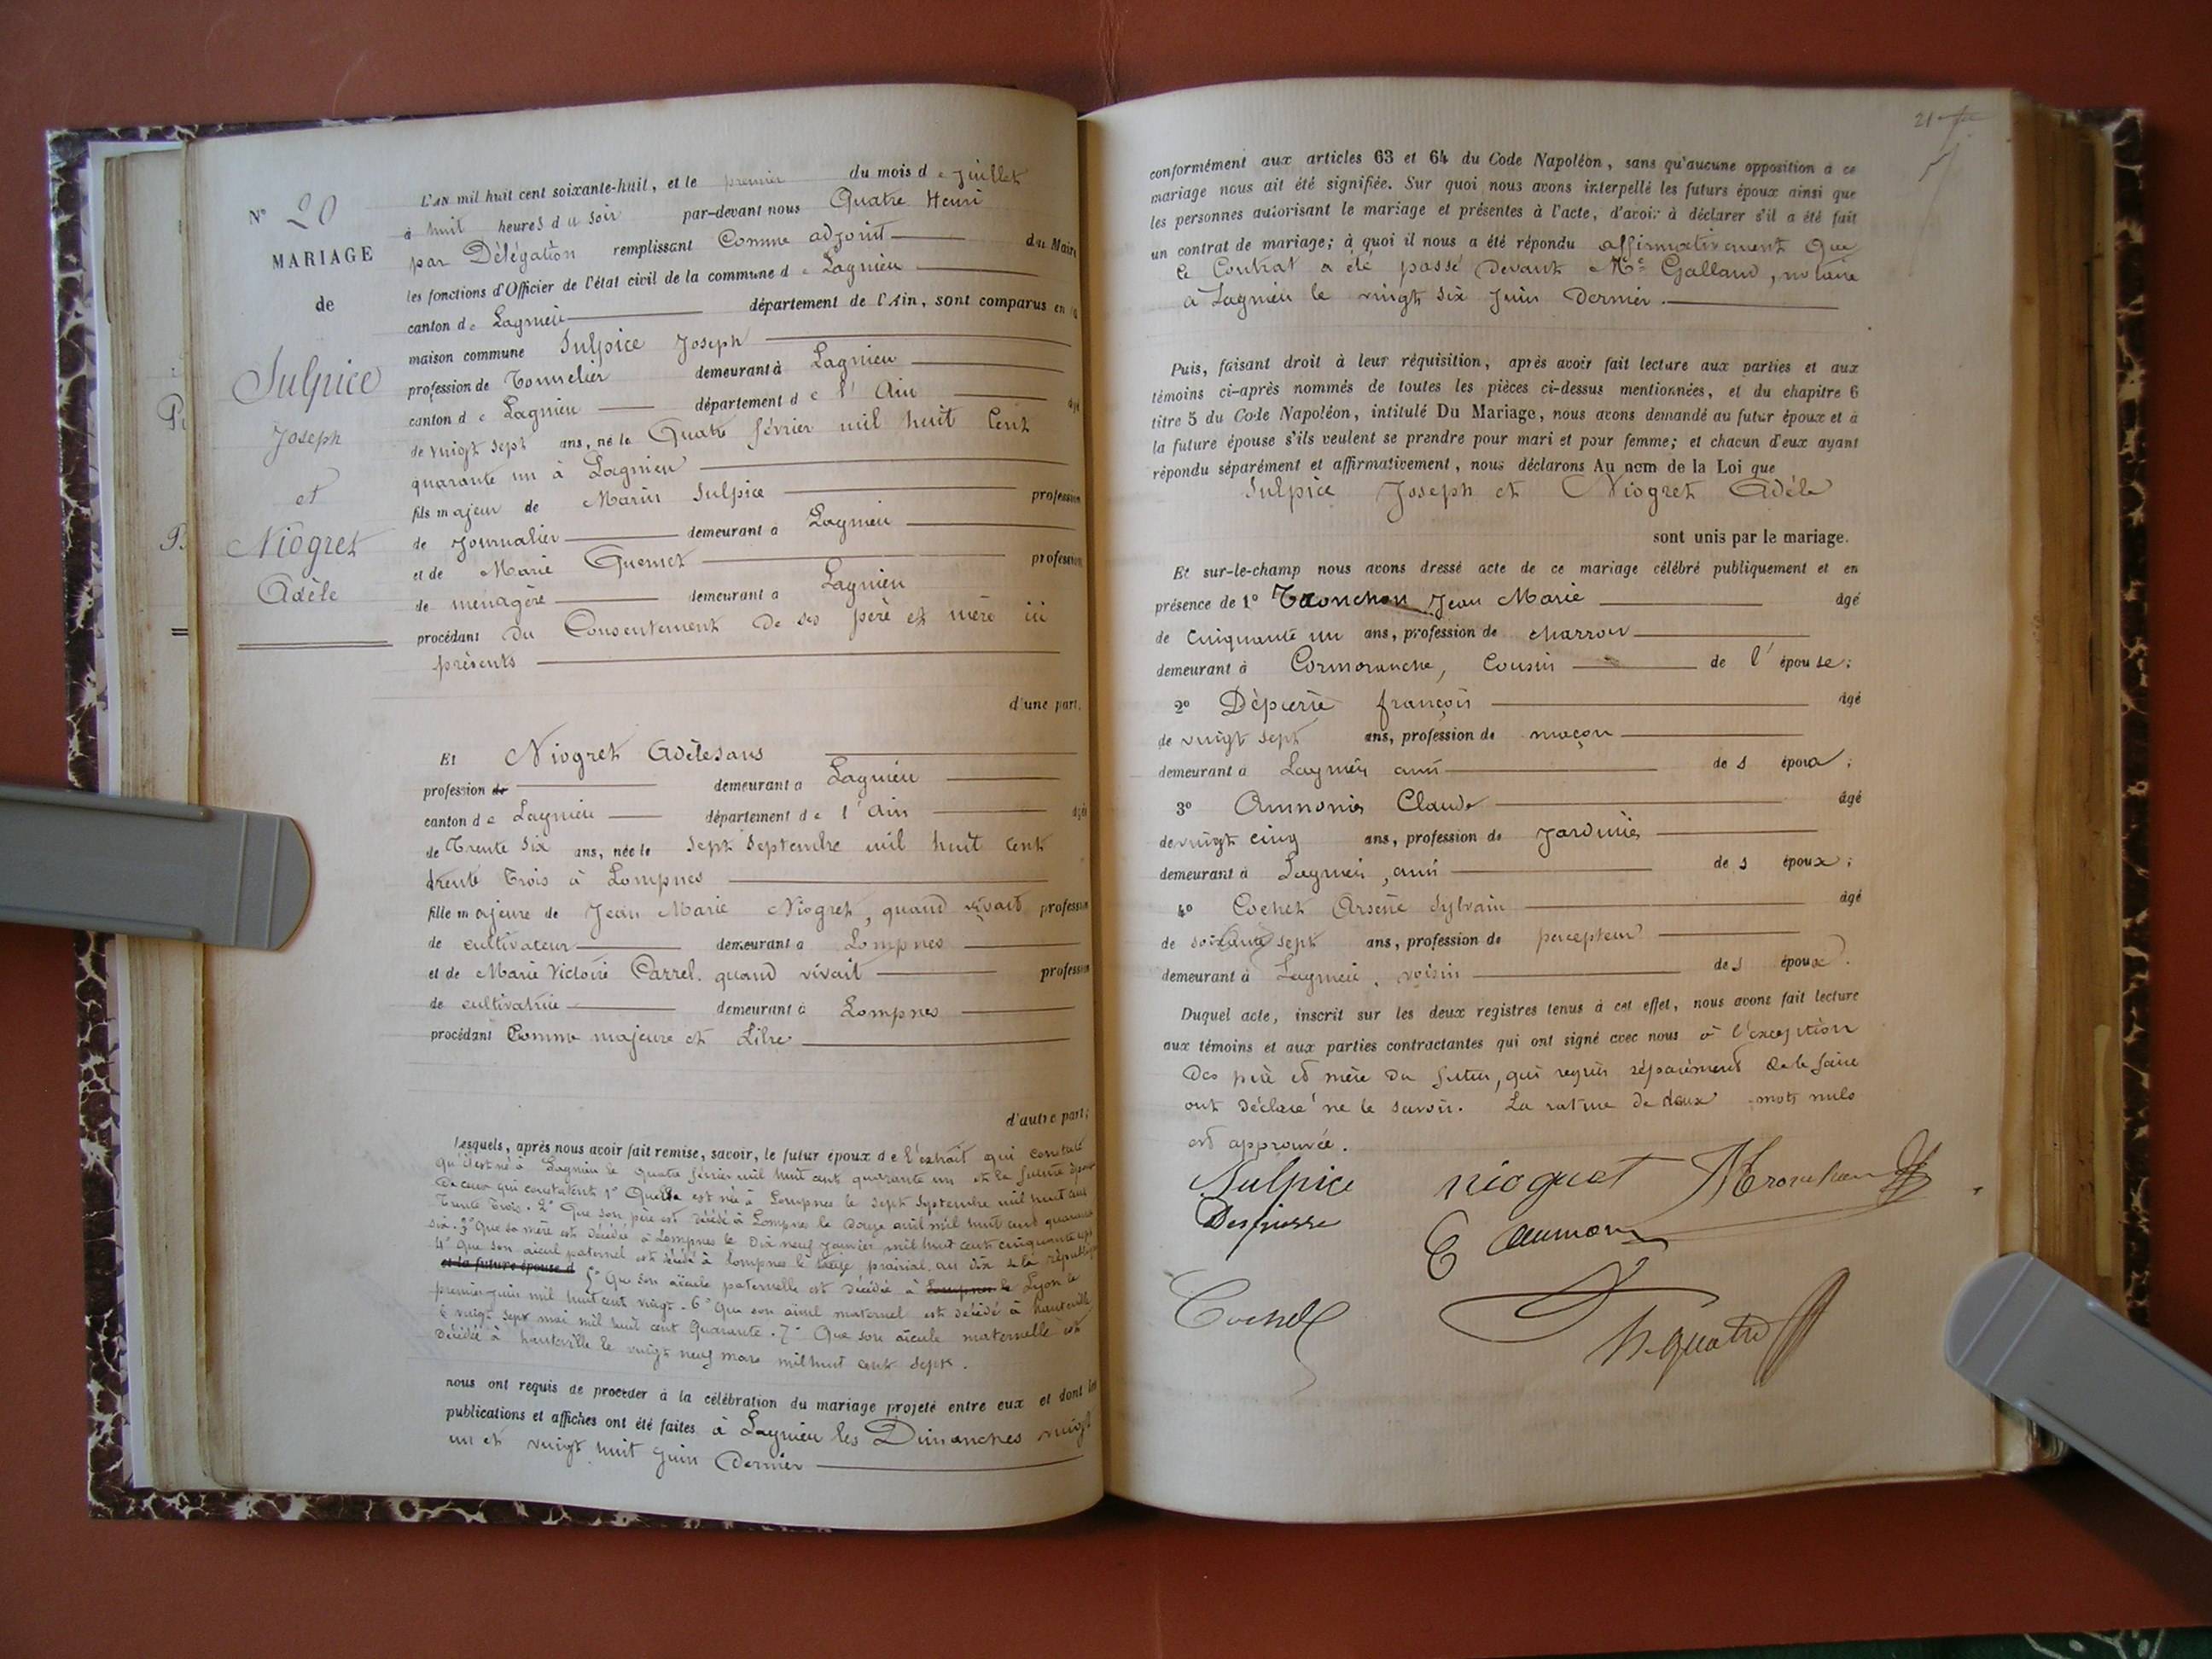 N° 20
MARIAGE
de
Sulpice
Joseph
et
Niogret
Adèle
L'AN mil huit cent soixante-huit, et le premier du mois de Juillet
à huit heures du soir par-devant nous Quatre Henri
par Délégation remplissant Comme adjoint du Maire
les fonctions d'Officier de l'état civil de la commune de Lagnieu
canton de Lagnieu département de l'Ain, sont comparus en la
maison commune Sulpice Joseph
profession de Tonnelier demeurant à Lagnieu
canton de Lagnieu département de l'Ain âgé
de vingt sept ans, né le Quatre février mil huit Cent
quarante un à Lagnieu
fils majeur de Marin Sulpice profession
de Journalier demeurant à Lagnieu
et de Marie profession
de ménagère demeurant à Lagnieu
procédant Du Consentement De ses père et mère ici
présents
d'une part.
Et Niogret Adèle sans
profession de demeurant à Lagnieu
canton de Lagnieu département de l'Ain âgé
de Trente Six ans, née le Sept Septembre mil huit cent
trente Trois à Lompnes
fille majeure de Jean Marie Niogret, quand vivait profession
de cultivateur demeurant à Lompnes
et de Marie Victoire Carrel. quand vivait profession
de cultivatrice demeurant à Lompnes
procédant Comme majeure et Libre
d'autre part;
lesquels, après nous avoir fait remise, savoir, le futur époux de l'extrait qui constate
qu'il est né à Lagnieu le quatre février mil huit cent quarante un et la future épouse
De ceux qui constatent 1° Quelle est née à Lompnes le sept Septembre mil huit cent
Trente Trois. 2° Que son père est décédé à Lompnes le Douze avril mil huit cent quarante
six. 3° Que sa mère est décédée à Lompnes le Dix neuf Janvier mil huit cent cinquante sept
4° Que son aïeul paternel est décédé à Lompnes le prairial an dix de la république
et la future épouse d 5° Que son aïeule paternelle est Décédée à Lompnes le Lyon le
premier juin mil huit cent vingt. 6° Que son aïeul maternel est décédé à hauteville
le vingt sept mai mil huit cent Quarante. 7° Que son aïeule maternelle est
Décédée à hauteville le vingt neuf mars mil huit cent sept.
nous ont requis de procéder à la célébration du mariage projeté entre eux et dont les
publications et affiches ont été faites à Lagnieu les Dimanches vingt
un et vingt huit Juin Dernier
21
conformément aux articles 63 et 64 du Code Napoléon, sans qu'aucune opposition à ce
mariage nous ait été signifiée. Sur quoi nous avons interpellé les futurs époux ainsi que
les personnes autorisant le mariage et présentes à l'acte, d'avoir à déclarer s'il a été fait
un contrat de mariage; à quoi il nous a été répondu affirmativement Que
le Contrat a été passé Devant Me Galland, notaire
à Lagnieu le vingt six Juin Dernier.
Puis, faisant droit à leur réquisition, après avoir fait lecture aux parties et aux
témoins ci-après nommés de toutes les pièces ci-dessus mentionnées, et du chapitre 6
titre 5 du Code Napoléon, intitulé Du Mariage, nous avons demandé au futur époux et à
la future épouse s'ils veulent se prendre pour mari et pour femme; et chacun d'eux ayant
répondu séparément et affirmativement, nous déclarons Au nom de la Loi que
Sulpice Joseph et Niogret Adèle
sont unis par le mariage.
Et sur-le-champ nous avons dressé acte de ce mariage célébré publiquement et en
présence de 1° Tronchon Jean Marie âgé
de Cinquante un ans, profession de charron
demeurant à Cormoranche, Cousin de l'épouse;
2° Dépierre françois âgé
de vingt sept ans, profession de maçon
demeurant à Lagnieu ami des époux;
3° Claude âgé
de vingt cinq ans, profession de Jardinier
demeurant à Lagnieu, ami des époux;
4° Cochet Arsène Sylvain âgé
de soixante sept ans, profession de percepteur
demeurant à Lagnieu, voisin des époux.
Duquel acte, inscrit sur les deux registres tenus à cet effet, nous avons fait lecture
aux témoins et aux parties contractantes qui ont signé avec nous à l'exception
Des père et mère du futur, qui requis séparément de le faire
ont Déclaré ne le savoir. La rature de deux mots nuls
est approuvée.
Sulpice
Cochet
H. Quatre